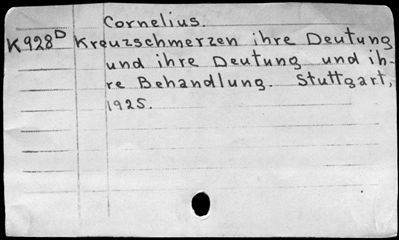 Cornelius.
K928D Kreuzschmerzen ihre Deutung
und ihre Deutung und ih-
re Behandlung. Stuttgart,
1925.